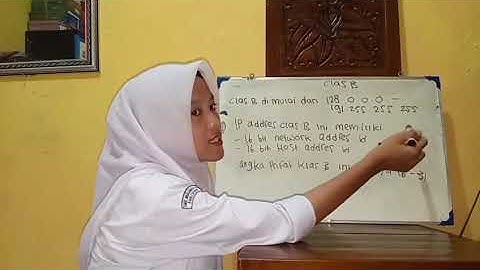 clas B
clas B di mulai dari 128 0 0 0 -
191 255 255 255
IP addres clas B ini memiliki
- 16 bit network addres id
- 16 bit Host addres id
angka Prifat klas B ini